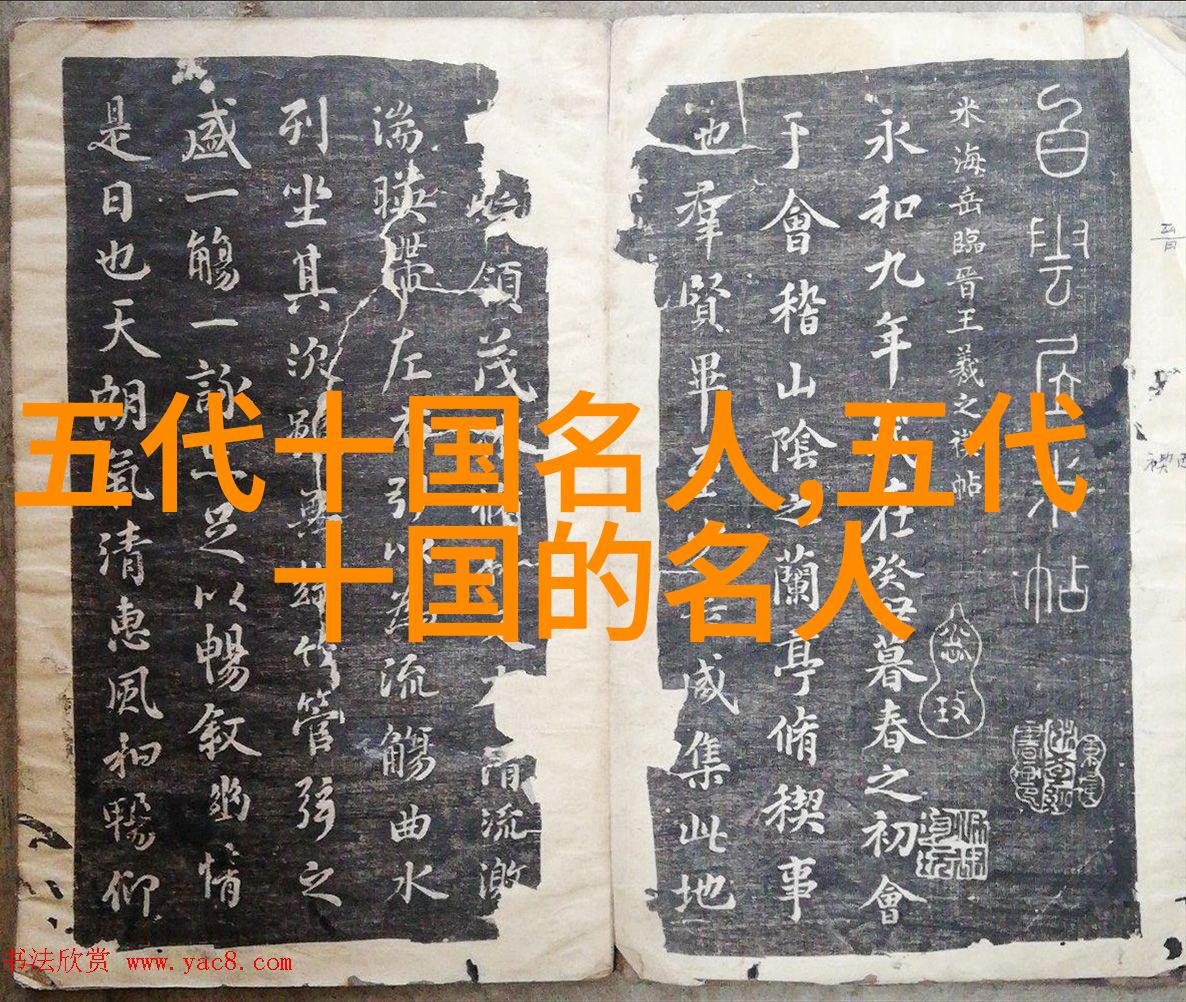 五代十国名人,五代
十国的名人
白雲居米帖
米海岳臨晉王羲之禊帖
永和九年歲在癸丑暮春之初會
于會稽山陰之蘭亭脩稧事
也羣賢畢至咸集此地
領茂林清流激
湍暎帶左右引以為流觴曲水
列坐其次雖無絲竹管弦之
盛一觴一詠亦足以暢敘幽情
是日也天朗氣清惠風和暢仰
书法欣赏 www.yac8.com